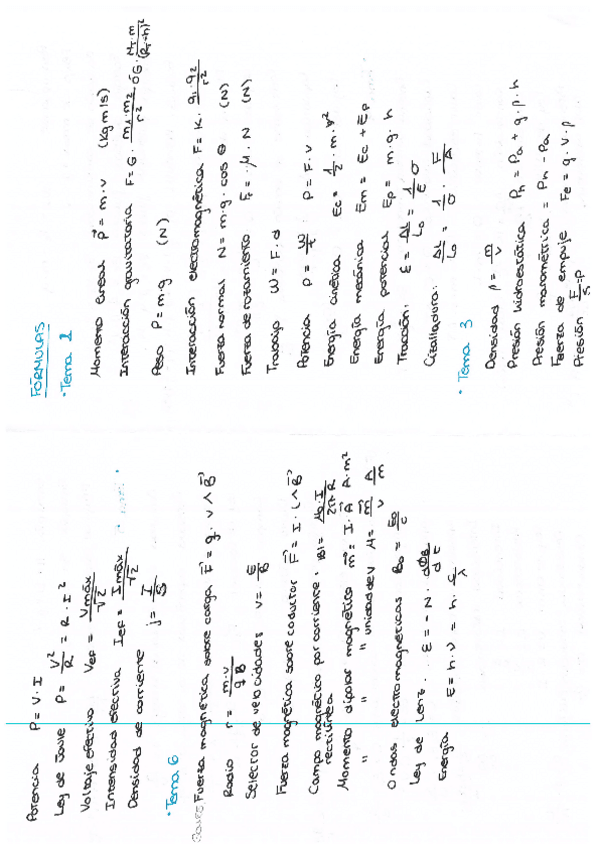 FÓRMULAS
· Tema 1
Momento lineal p⃗ = m · v (kg m/s)
Interacción gravitatoria F = G · m₁ · m₂ / r² ó G · M_T · m / (R_T + h)²
Peso P = m · g (N)
Interacción electromagnética F = K · q₁ · q₂ / r²
Fuerza normal N = m · g · cos θ (N)
Fuerza de rozamiento Fr = μ · N (N)
Trabajo W = F · d
Potencia P = W / t P = F · v
Energía cinética Ec = 1/2 · m · v²
Energía mecánica Em = Ec + Ep
Energía potencial Ep = m · g · h
Tracción: ε = ΔL / L₀ = 1/E σ
Cizalladura: ΔL / L₀ = 1/σ · F/A
· Tema 3
Densidad ρ = m / v
Presión hidroestática Ph = Pa + g · ρ · h
Presión manométrica = Ph - Pa
Fuerza de empuje Fe = g · V · ρ
Presión F/S = P
Potencia P = V · I
Ley de Joule P = V² / R = R · I²
Voltaje efectivo Vef = Vmáx / √2
Intensidad efectiva Ief = Imáx / √2
Densidad de corriente j = I / S
· Tema 6
Fuerza magnética sobre carga F⃗ = q · v ∧ B⃗
Radio r = m · v / q B
Selector de velocidades v = E / B
Fuerza magnética sobre coductor F⃗ = I · L ∧ B⃗
Campo magnético por corriente rectilínea · |B| = μ₀ · I / 2π · R
Momento dipolar magnético m⃗ = I · A⃗ A · m²
" " " unidad de v M = m⃗ / v A / m
Ondas electromagneticas B₀ = E₀ / c
Ley de Lenz. ε = - N · dΦB / d t
Energía E = h · ν = h · c / λ